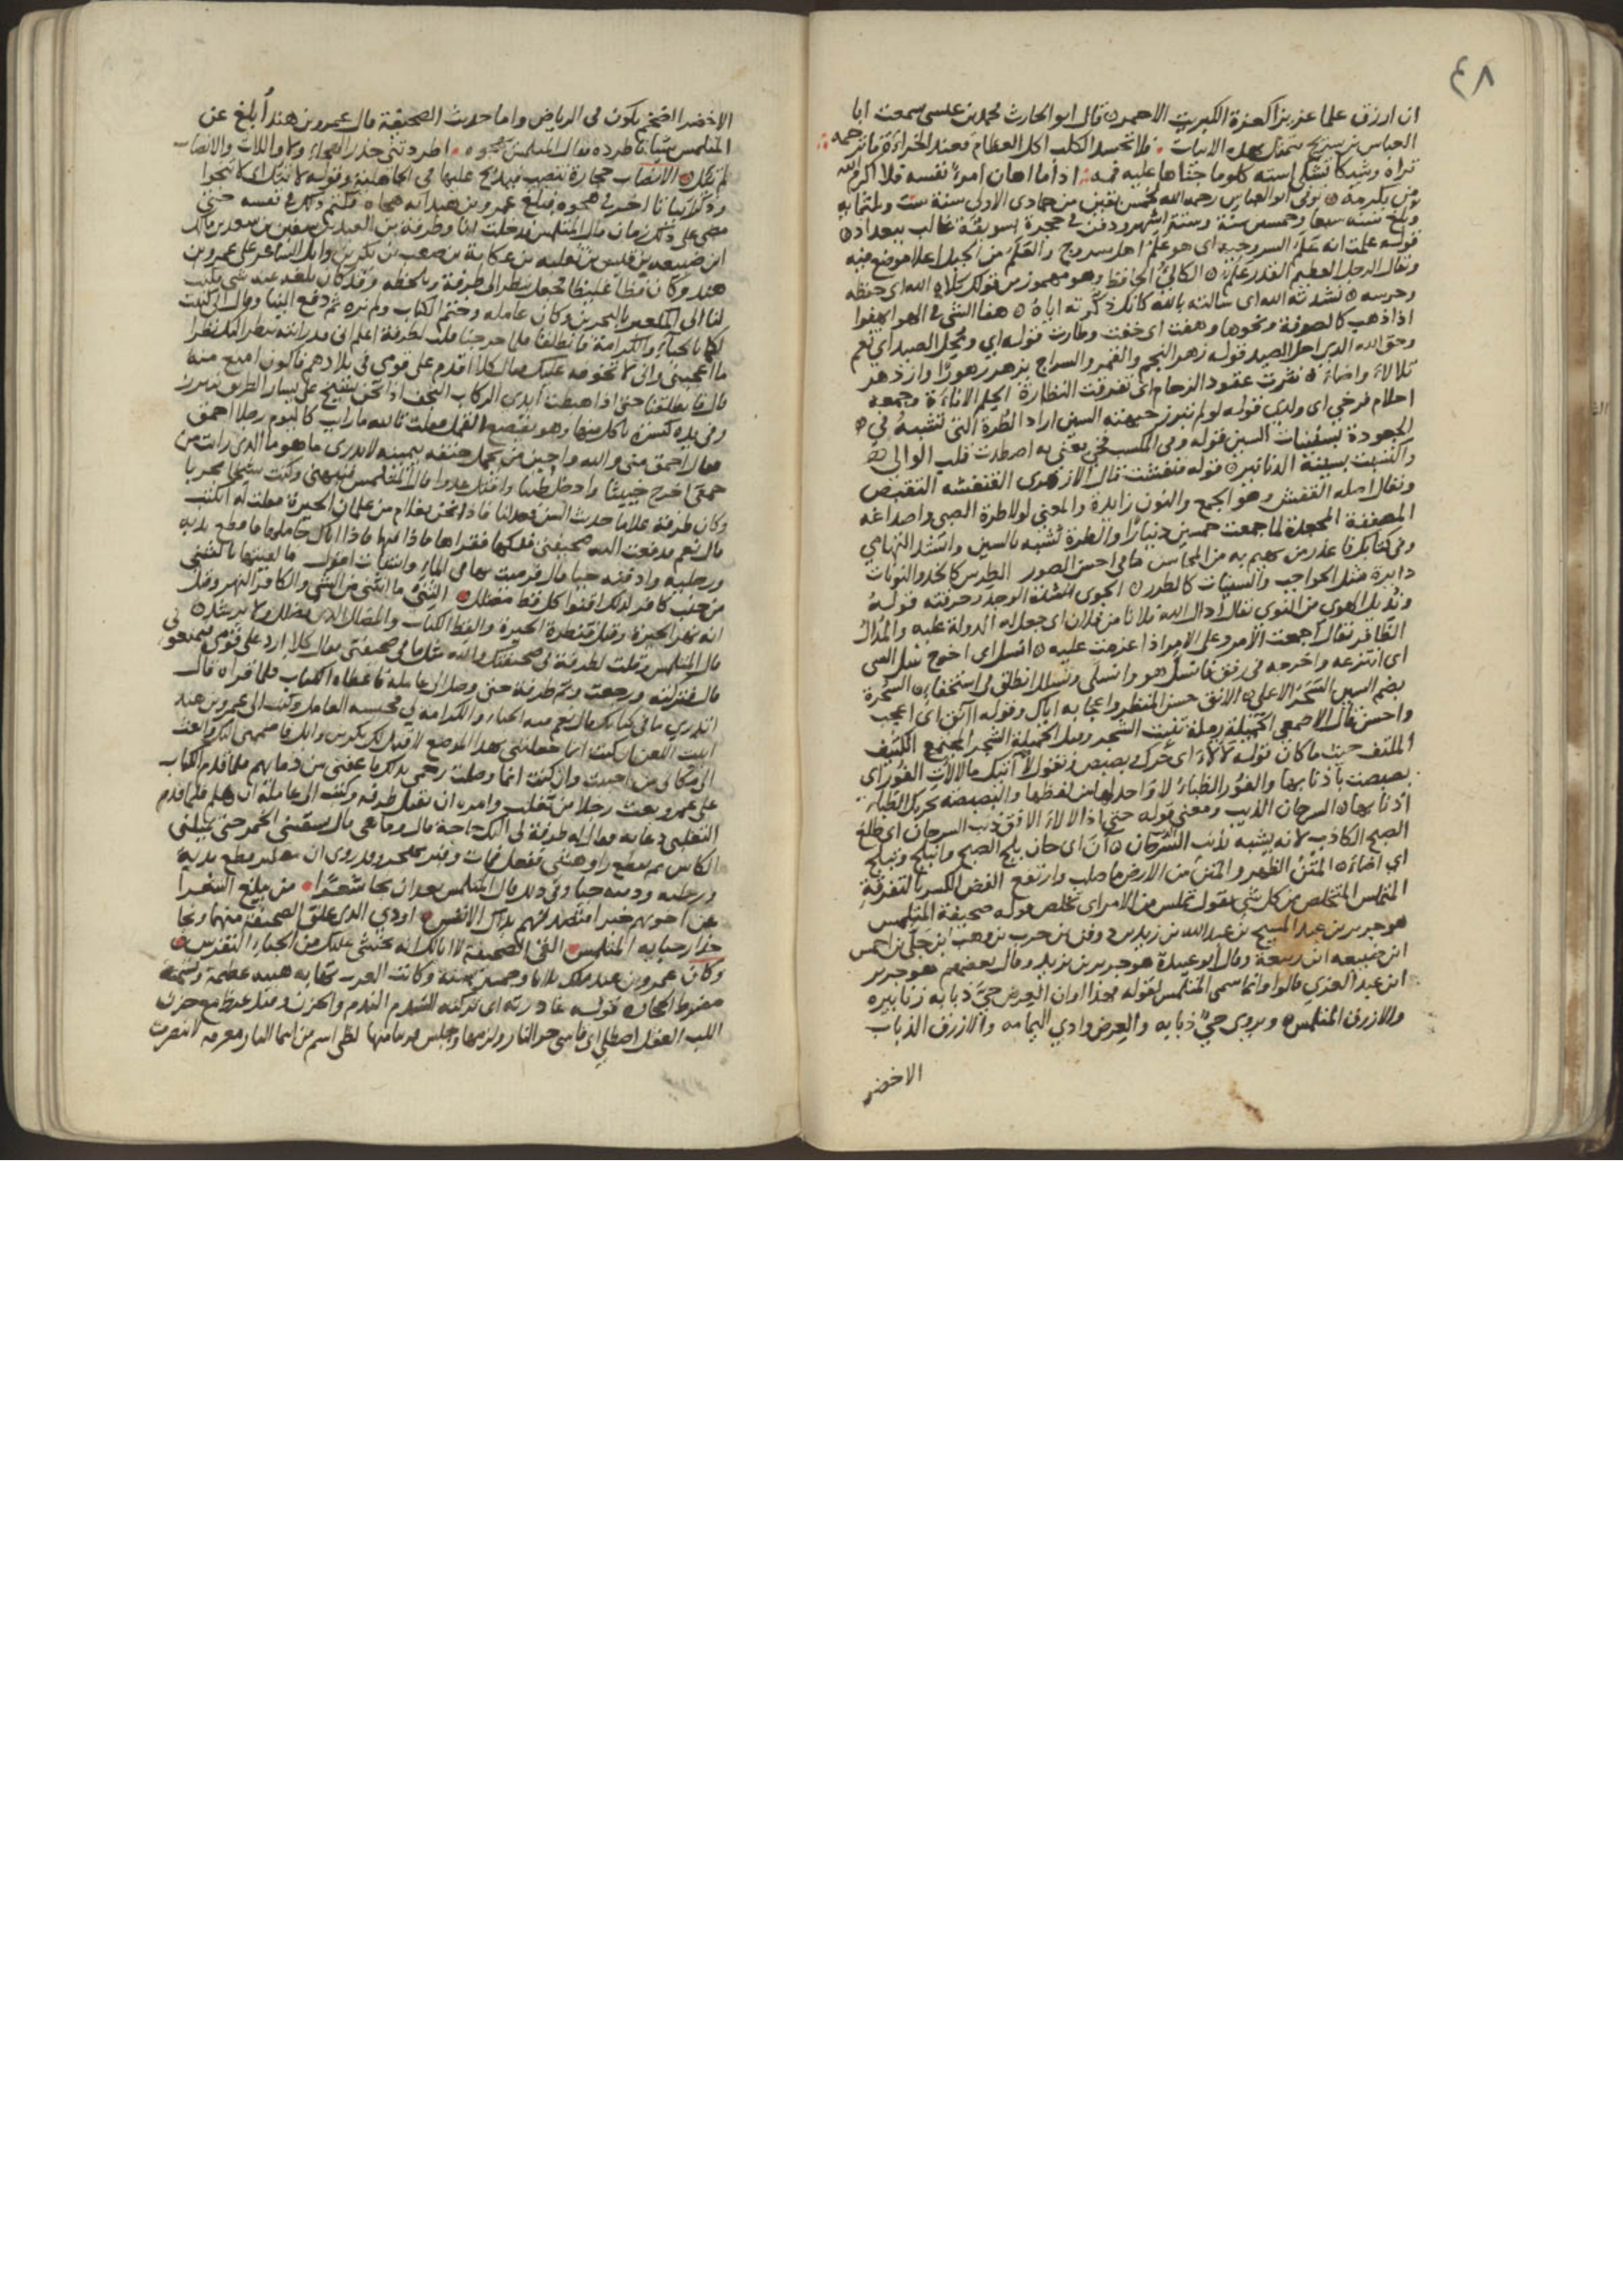 ٤٨
ان ارزق علما عزيزا كعزة الكبريت الاحمر قال ابو الحارث محمد بن عيسى سمعت ابا
العباس بن سريج يتمثل بهذه الابيات فلا تحسد الكلب اكل العظام فعند الخراءة ما ترحمه
تراه وشيكا تشكى استه كلوما جناها عليه فمه اذا ما اهان امرؤ نفسه فلا اكرم الله
من يكرمه توفي ابو العباس رحمه الله لخمس بقين من جمادى الاولى سنة ست وثلثمايه
وبلغ سنه سبعا وخمسين سنة وستة اشهر ودفن في حجرة بسويقة غالب ببغداد
قوله علمت انه علم السروجيه اى هو علم اهل سروج والعلم من الجبل اعلا موضع فيه
ويقال الرجل العظيم القدر علم الكالئ الحافظ وهو مهموز من قولك كلاه الله اى حفظه
وحرسه نشدته الله اى سالته بالله كانك ذكرته اياه هفا الشي في الهوا يهفوا
اذا ذهب كالصوفة ونحوها وهفت اى خفت وطارت قوله اي ومحل الصيد اى نعم
وحق الله الذي احل الصيد قوله زهر النجم والقمر والسراج يزهر زهورا وازدهر
تلالا واضاء نثرت عقود الزحام اى تفرقت النظارة الحلم الاناءة وجمعه
احلام فرخي اى ولدي قوله لو لم تبرز جبهته السين اراد الطرة التي تشبه في
الجعودة بسينات السين قوله وفي المكسب فخي يعني به اصطدت قلب الوالي
واكتسبت بسببه الدنانير قوله قنفشت قال الازهري القنفشه التقبض
ويقال اصله القفش وهو الجمع والنون زايدة والمعني لولا طرة الصبي واصداغه
المصففة المجعدة لما جمعت خمسين دينارا والطرة تشبه بالسين وانشد التهامي
وفي كتابك فاعذر من يهيم به من المحاسن ما في احسن الصور الطرس كالخد والنونات
دايرة مثل الحواجب والسينات كالطرر الجوى شدة الوجد وحرقته قوله
وتديل الهوى من النوى يقال ادال الله فلانا من فلان اى جعل له الدولة عليه والمدال
الظافر يقال اجمعت الامر وعلى الامر اذا عزمت عليه انسل اى اخرج نسل السى
اى انتزعه واخرجه في رفق فانسل هو وانسلى وتسلل انطلق في استخفاء السحرة
بضم السين السحر الاعلى الانق حسن المنظر واعجابه اياك وقوله آنق اى اعجب
واحسن قال الاصمعي الخميلة رملة تنبت الشجر وقيل الخميلة الشجر المجتمع الكثيف
الملتف حيث ما كان قوله لالا اى حرك وبصبص وتقول لا آتيك ما لالات الفور اى
بصبصت باذنابها والفور الظباء لا واحد لها من لفظها والبصبصه تحريك الظباء
اذنابها السرحان الذيب ومعنى قوله حتى اذا لالا الافق ذنب السرحان اى طلع
الصبح الكاذب لانه يشبه ذنب السرحان آن اى حان بلج الصبح وانبلج وتبلج
اي اضاء المتن الظهر والمتن من الارض ما صلب وارتفع الفض الكسر بالتفرقة
المتملس المتخلص من كل شي يقول تملس من الامر اى تخلص قوله صحيفة المتلمس
هو جرير بن عبد المسيح بن عبد الله بن زيد بن دوفن بن حرب بن وهب ابن جلي بن احمس
ابن ضبيعه ابن ربيعة وقال ابو عبيدة هو جرير بن يزيد وقال بعضهم هو جرير
ابن عبد العزي قالوا وانما سمى المتلمس لقوله فهذا اوان العرض حيّ ذبابه زنابيره
والازرق المتلمس ويروى جن ذبابه والعرض وادي اليمامه والازرق الذباب
الاخضر
الاخضر الضخم يكون في الرياض واما حديث الصحيفة قال عمرو بن هند ابلغ عن
المتلمس شيا فاطرده فقال المتلمس يهجوه اطردتني حذر الهجاء ولا واللات والانصاب
لم تئل الانصاب حجارة تنصب فيذبح عليها في الجاهلية وقوله لا تئل اى لا تنجوا
وذكر ابياتا اخر في هجوه فبلغ عمرو بن هند انه هجاه فكتم ذلك في نفسه حتى
مضى على ذلك زمان قال المتلمس فدخلت انا وطرفة بن العبد بن سفين بن سعد بن مالك
ابن ضبيعه بن قيس بن ثعلبه بن عكابة بن صعب بن بكر بن وايل الشاعر على عمرو بن
هند وكان فظا غليظا فجعل ينظر الى طرفة ويلحظه وقد كان بلغه عنه شي فكتب
لنا الى المكعبر بالبحرين وكان عامله وختم الكتاب ولم نره ثم دفع الينا وقال اني كتبت
لكما بالحباء والكرامة فانطلقنا فلما خرجنا قلت لطرفة اعلم اني قد رايته ينظر اليك نظرا
ما اعجبني واني لا تخوفه عليك قال كلا اقدم على قومي في بلادهم فاكون امنع منه
قال فانطلقنا حتى اذا هبطت ايدى الركاب النجف اذا نحن بشيخ على يسار الطريق يتبرز
وفي يده كسرة ياكل منها وهو يقصع القمل فقلت تالله ما رايت كاليوم رجلا احمق
فقال احمق مني والله واجبن من يحمل حتفه بيمينه لا يدرى ما هو ما الذي رايت من
حمقى اخرج خبيثا وادخل طيبا واقتل عدوا قال المتلمس فنبهني وكنت شيخا مجربا
وكان طرفة غلاما حديث السن فعدلنا فاذا نحن بغلام من غلمان الحيرة فقلت له اتكتب
قال نعم فدفعت اليه صحيفتي ففكها فقراها فاذا فيها فاذا اتاك حاملها فاقطع يديه
ورجليه وادفنه حيا قال فرميت بها في الماء وانشات اقول القيتها بالثني
من جنب كافر كذلك اقنوا كل قط مضلل الثني ما انثنى من الشي والكافر النهر وقيل
انه نهر الحيرة وقيل قنطرة الحيرة والقط الكتاب والمضلل الذي يضلل ولا يرشد
قال المتلمس وقلت لطرفة في صحيفتك والله مثل ما في صحيفتي فقال كلا ارد على قومي فيمنعوني
قال فتركته ورجعت وتم طرفة حتى وصل الى عامله فاعطاه الكتاب فلما قراه قال
اتدري ما في كتابك قال نعم فيه الحباء والكرامه لي فحبسه العامل وكتب الى عمرو بن هند
ابيت اللعن ان كنت انما جعلتني بهذا الموضع لاقتل لك بكر بن وايل فاضممني اليك وابعث
الى مكاني من احببت وان كنت انما وصلت رحمي بذلك فاعفني من دمايهم فلما قدم الكتاب
على عمرو بعث رجلا من تغلب وامره ان يقتل طرفه وكتب الى عامله ان هلم فلما قدم
التغلبي دعا به فقال له طرفة لي اليك حاجة قال وما هي قال يسقيني الخمر حتى يثملني
الكاس ثم يقطع رواهشي ففعل فمات وقبره بهجر وقد روى ان المكعبر قطع يديه
ورجليه ودفنه حيا وفي ذلك قال المتلمس بعد ان نجا شعرا من مبلغ الشعرا
عن اخويهم خبرا فتصدقهم بذاك الانفس اودي الذي علق الصحيفة منهما ونجا
حذار حبايه المتلمس القى الصحيفة لا ابالك انه يخشى عليك من الحباء النقرس
وكان عمرو بن هند ملك ثلاثا وخمسين سنة وكانت العرب تهابه هيبه عظيمة وتسميه
مضرط الحجاره قوله غادرته اى تركته السدم الندم والحزن وقيل غيظ مع حزن
اللب العقل اصطلي اى قاسى حر النار ولزمها وجلس قريبا منها لظى اسم من اسما النار معرفه لا تنصرف